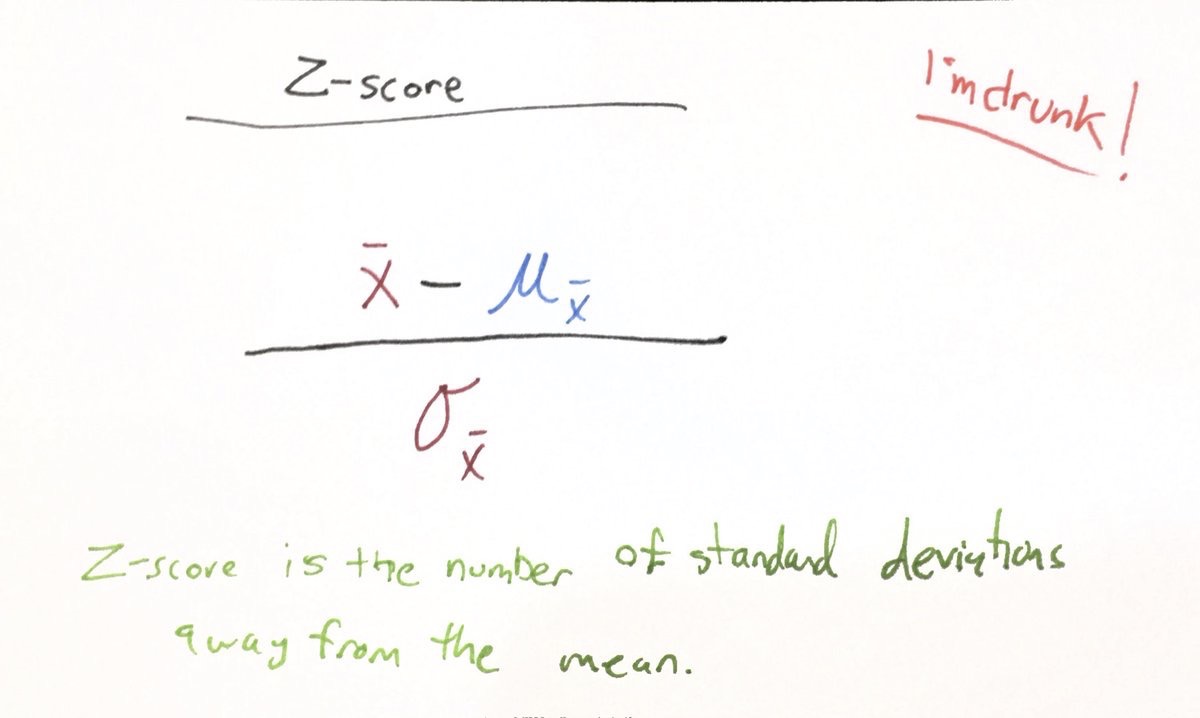 Z-score
I'm drunk!
x̄ - μx̄
σx̄
Z-score is the number of standard deviations
away from the mean.